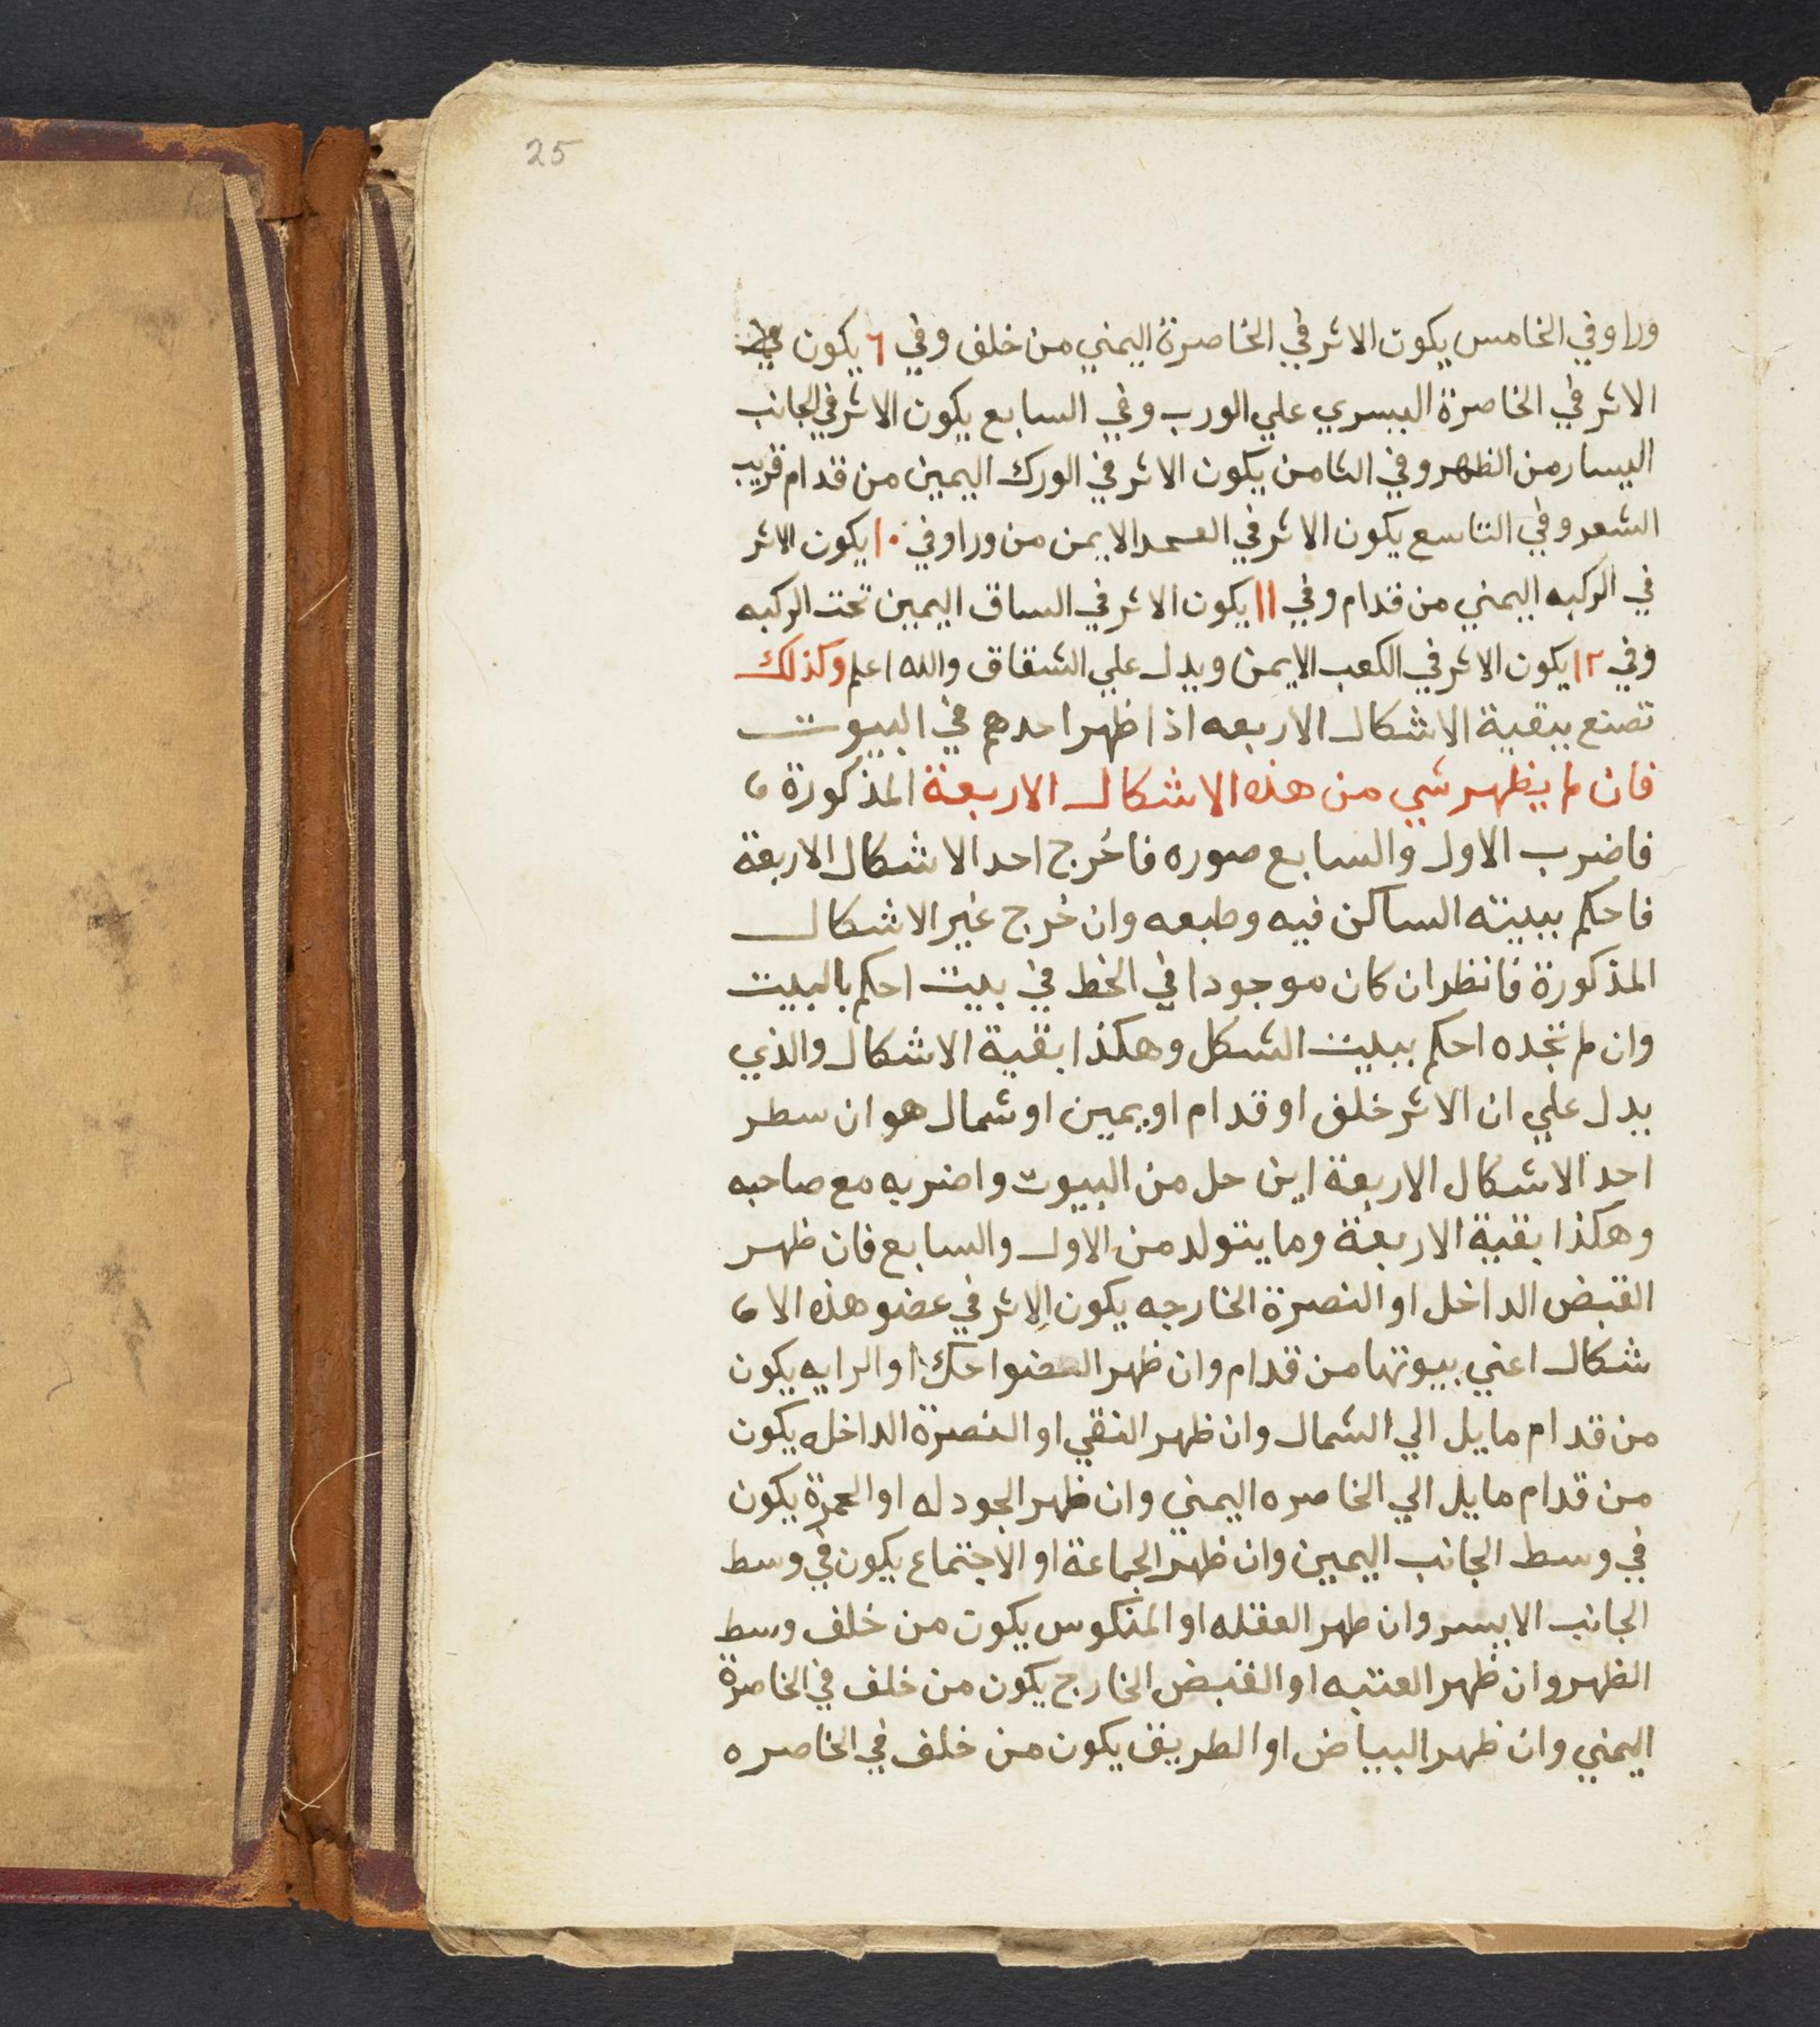 25
ورا وفي الخامس يكون الاثر في الخاصرة اليمني من خلف وفي ٦ يكون
الاثر في الخاصرة اليسري علي الورب وفي السابع يكون الاثر في الجانب
اليسار من الظهر وفي الثامن يكون الاثر في الورك اليمين من قدام قريب
الشعر وفي التاسع يكون الاثر في الايمن من ورا وفي ١٠ يكون الاثر
في الركبه اليمني من قدام وفي ١١ يكون الاثر في الساق اليمين تحت الركبه
وفي ١٢ يكون الاثر في الكعب الايمن ويدل علي الشقاق والله اعلم وكذلك
تصنع ببقية الاشكال الاربعه اذا ظهر احدهم في البيوت
فان لم يظهر شي من هذه الاشكال الاربعة المذكورة
فاضرب الاول والسابع صوره فاخرج احد الاشكال الاربعة
فاحكم ببيته الساكن فيه وطبعه وان خرج غير الاشكال
المذكورة فانظر ان كان موجودا في الخط في بيت احكم بالبيت
وان لم تجده احكم ببيت الشكل وهكذا بقية الاشكال والذي
يدل علي ان الاثر خلف او قدام او يمين او شمال هو ان سطر
احد الاشكال الاربعة اين حل من البيوت واضربه مع صاحبه
وهكذا بقية الاربعة وما يتولد من الاول والسابع فان ظهر
القبض الداخل او النصرة الخارجه يكون الاثر في عضو هذه الا
شكال اعني بيوتها من قدام وان ظهر احك او الرايه يكون
من قدام مايل الي الشمال وان ظهر النقي او النصرة الداخله يكون
من قدام مايل الي الخاصره اليمني وان ظهر الجودله او الحمرة يكون
في وسط الجانب اليمين وان ظهر الجماعة او الاجتماع يكون في وسط
الجانب الايسر وان ظهر العقله او المنكوس يكون من خلف وسط
الظهر وان ظهر العتبه او القبض الخارج يكون من خلف في الخاصرة
اليمني وان ظهر البياض او الطريق يكون من خلف في الخاصره